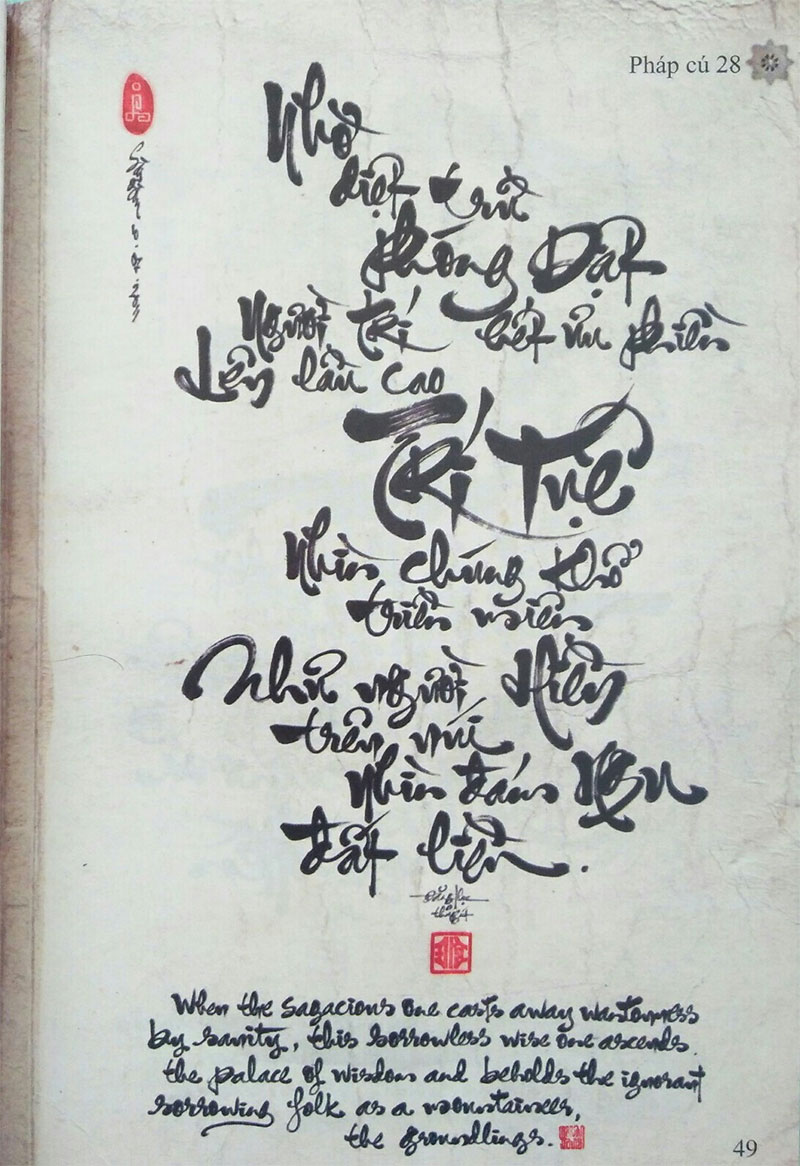 Pháp cú 28
Nhờ
diệt trừ
phóng Dật
Người trí hết ưu phiền
Lên lầu cao
Trí Tuệ
Nhìn chúng khổ
triền miên
Như người Hiền
trên núi
Nhìn đám Ngu
đất liền.
When the sagacious one casts away wantonness
by sanity, this sorrowless wise one ascends
the palace of wisdom and beholds the ignorant
sorrowing folk as a mountaineer,
the groundlings.
49